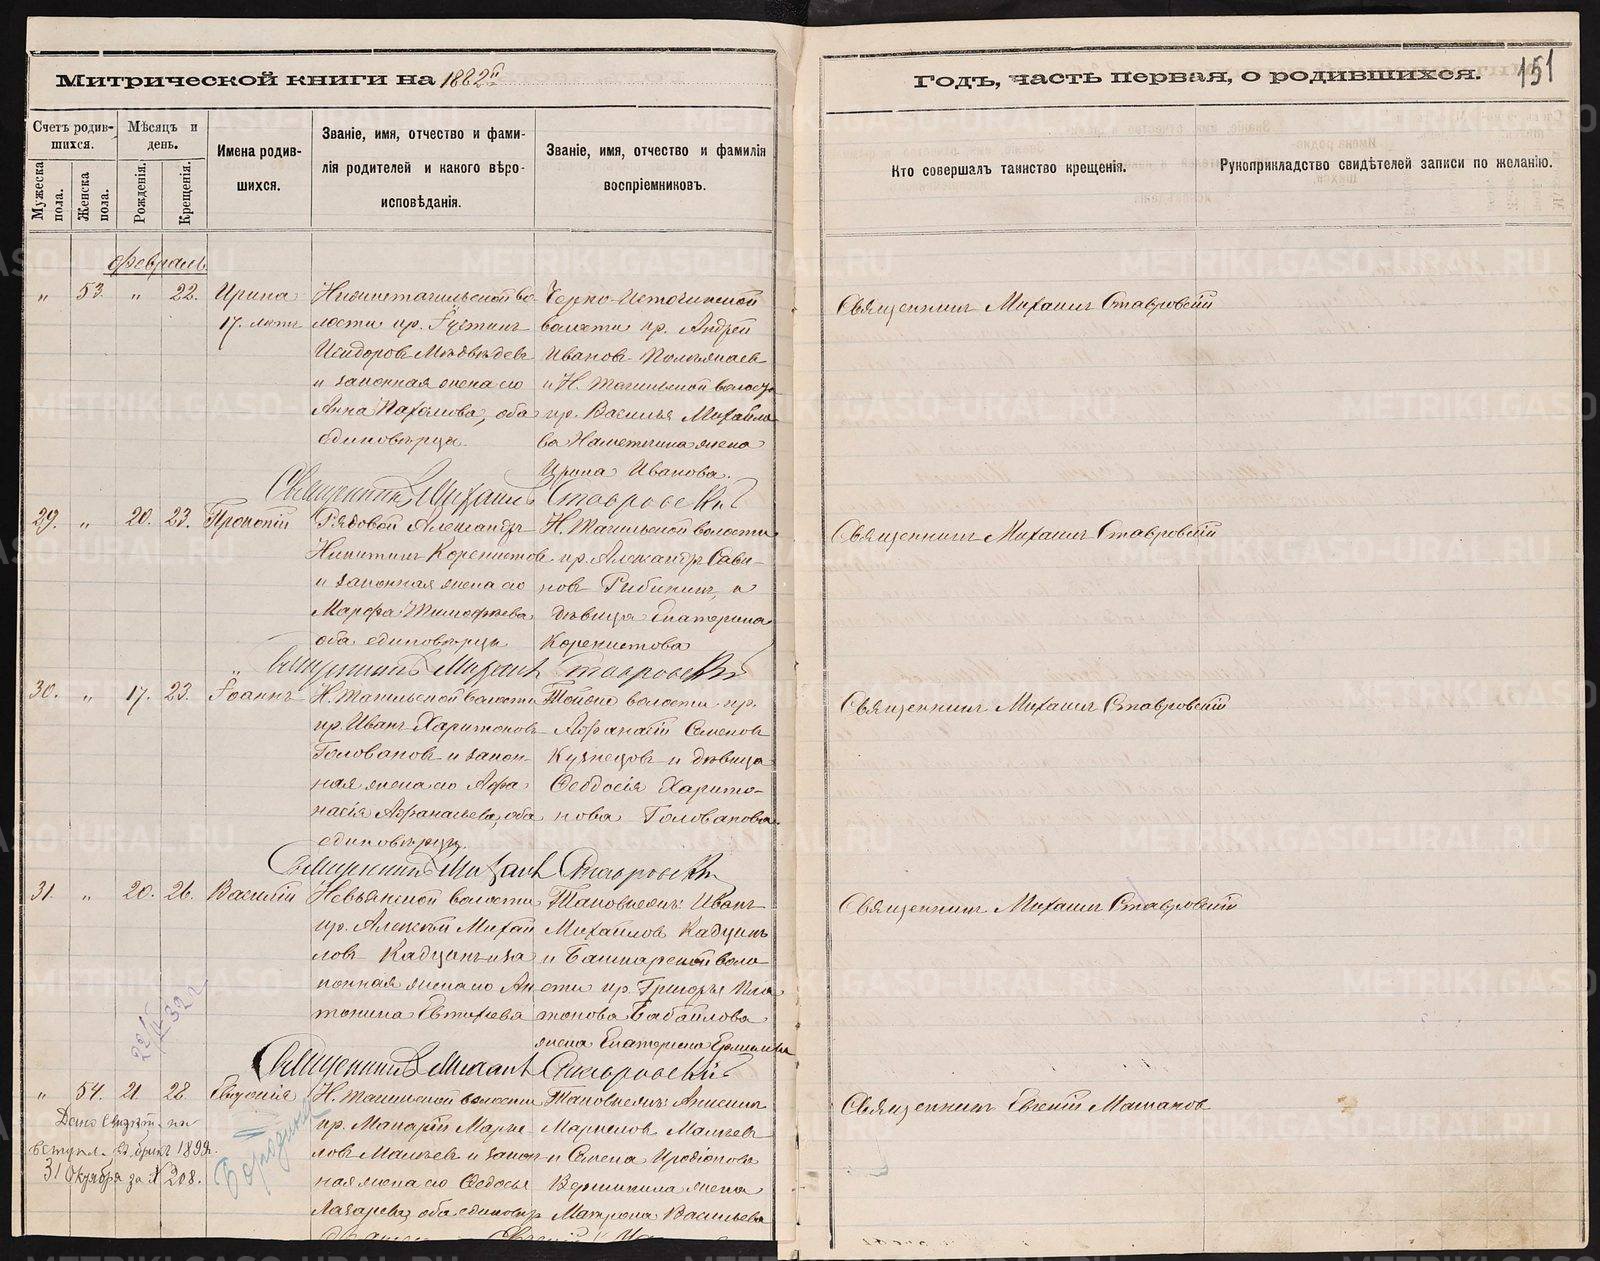 Митрической книги на 1882й
Годъ, часть первая, о родившихся.
151
Счетъ родив-
шихся.
Мѣсяцъ и
день.
Мужеска
пола.
Женска
пола.
Рожденія.
Крещенія.
Имена родив-
шихся.
Званіе, имя, отчество и фами-
лія родителей и какого вѣро-
исповѣданія.
Званіе, имя, отчество и фамилія
воспріемниковъ.
Кто совершалъ таинство крещенія.
Рукоприкладство свидѣтелей записи по желанію.
Февраль
„ 53. „ 22. Ирина
17. лѣтъ
Нижнетагильской во-
лости кр. Іустинъ
Исидоровъ Медвѣдевъ
и законная жена его
Анна Пахомова, оба
единовѣрцы.
Черно-Источинской
волости кр. Андрей
Ивановъ
и Н. Тагильской волости
кр. Василья Михайло
ва жена
Ирина Иванова.
Священникъ Михаилъ Ставровскій
Священникъ Михаилъ Ставровскій
29. „ 20. 23. Прокопій
Рядовой Александръ
Никитинъ Коренистовъ
и законная жена его
Марфа Тимофѣева
оба единовѣрцы
Н. Тагильской волости
кр. Александръ Сави-
новъ и
дѣвица Екатерина
Коренистова
Священникъ Михаилъ Ставровскій
Священникъ Михаилъ Ставровскій
30. „ 17. 23. Іоаннъ
Н. Тагильской волости
кр. Иванъ Харитоновъ
Головановъ и закон-
ная жена его Афа
насія Афанасьева, оба
единовѣрцы.
Тойже волости кр.
Афанасій Семеновъ
Кузнецовъ и дѣвица
Ѳеодосія Харито-
нова Голованова.
Священникъ Михаилъ Ставровскій
Священникъ Михаилъ Ставровскій
31. „ 20. 26. Василій
Невьянской волости
кр. Алексѣй Михай
ловъ Кадцынъ и за
конная жена его Ан
тонина Евтихіева
Тановленъ: Иванъ
Михайловъ Кадцынъ
и Башкарской воло
сти кр. Григорья Пла
тонова Бабайлова
жена Екатерина
Священникъ Михаилъ Ставровскій
Священникъ Михаилъ Ставровскій
„ 54. 21. 28 Евдокія
Н. Тагильской волости
кр. Макарій Марке
ловъ Малѣевъ и закон
ная жена его Ѳедосья
Лазарева, оба единовѣр
Анисимъ
Маркеловъ Малѣевъ
и Семена Иродіонова
Вершинина жена
Матрона Васильева
Священникъ Евгеній
Дано свидѣт. на
вступл. въ бракъ 1899.
31 Октября за № 208.